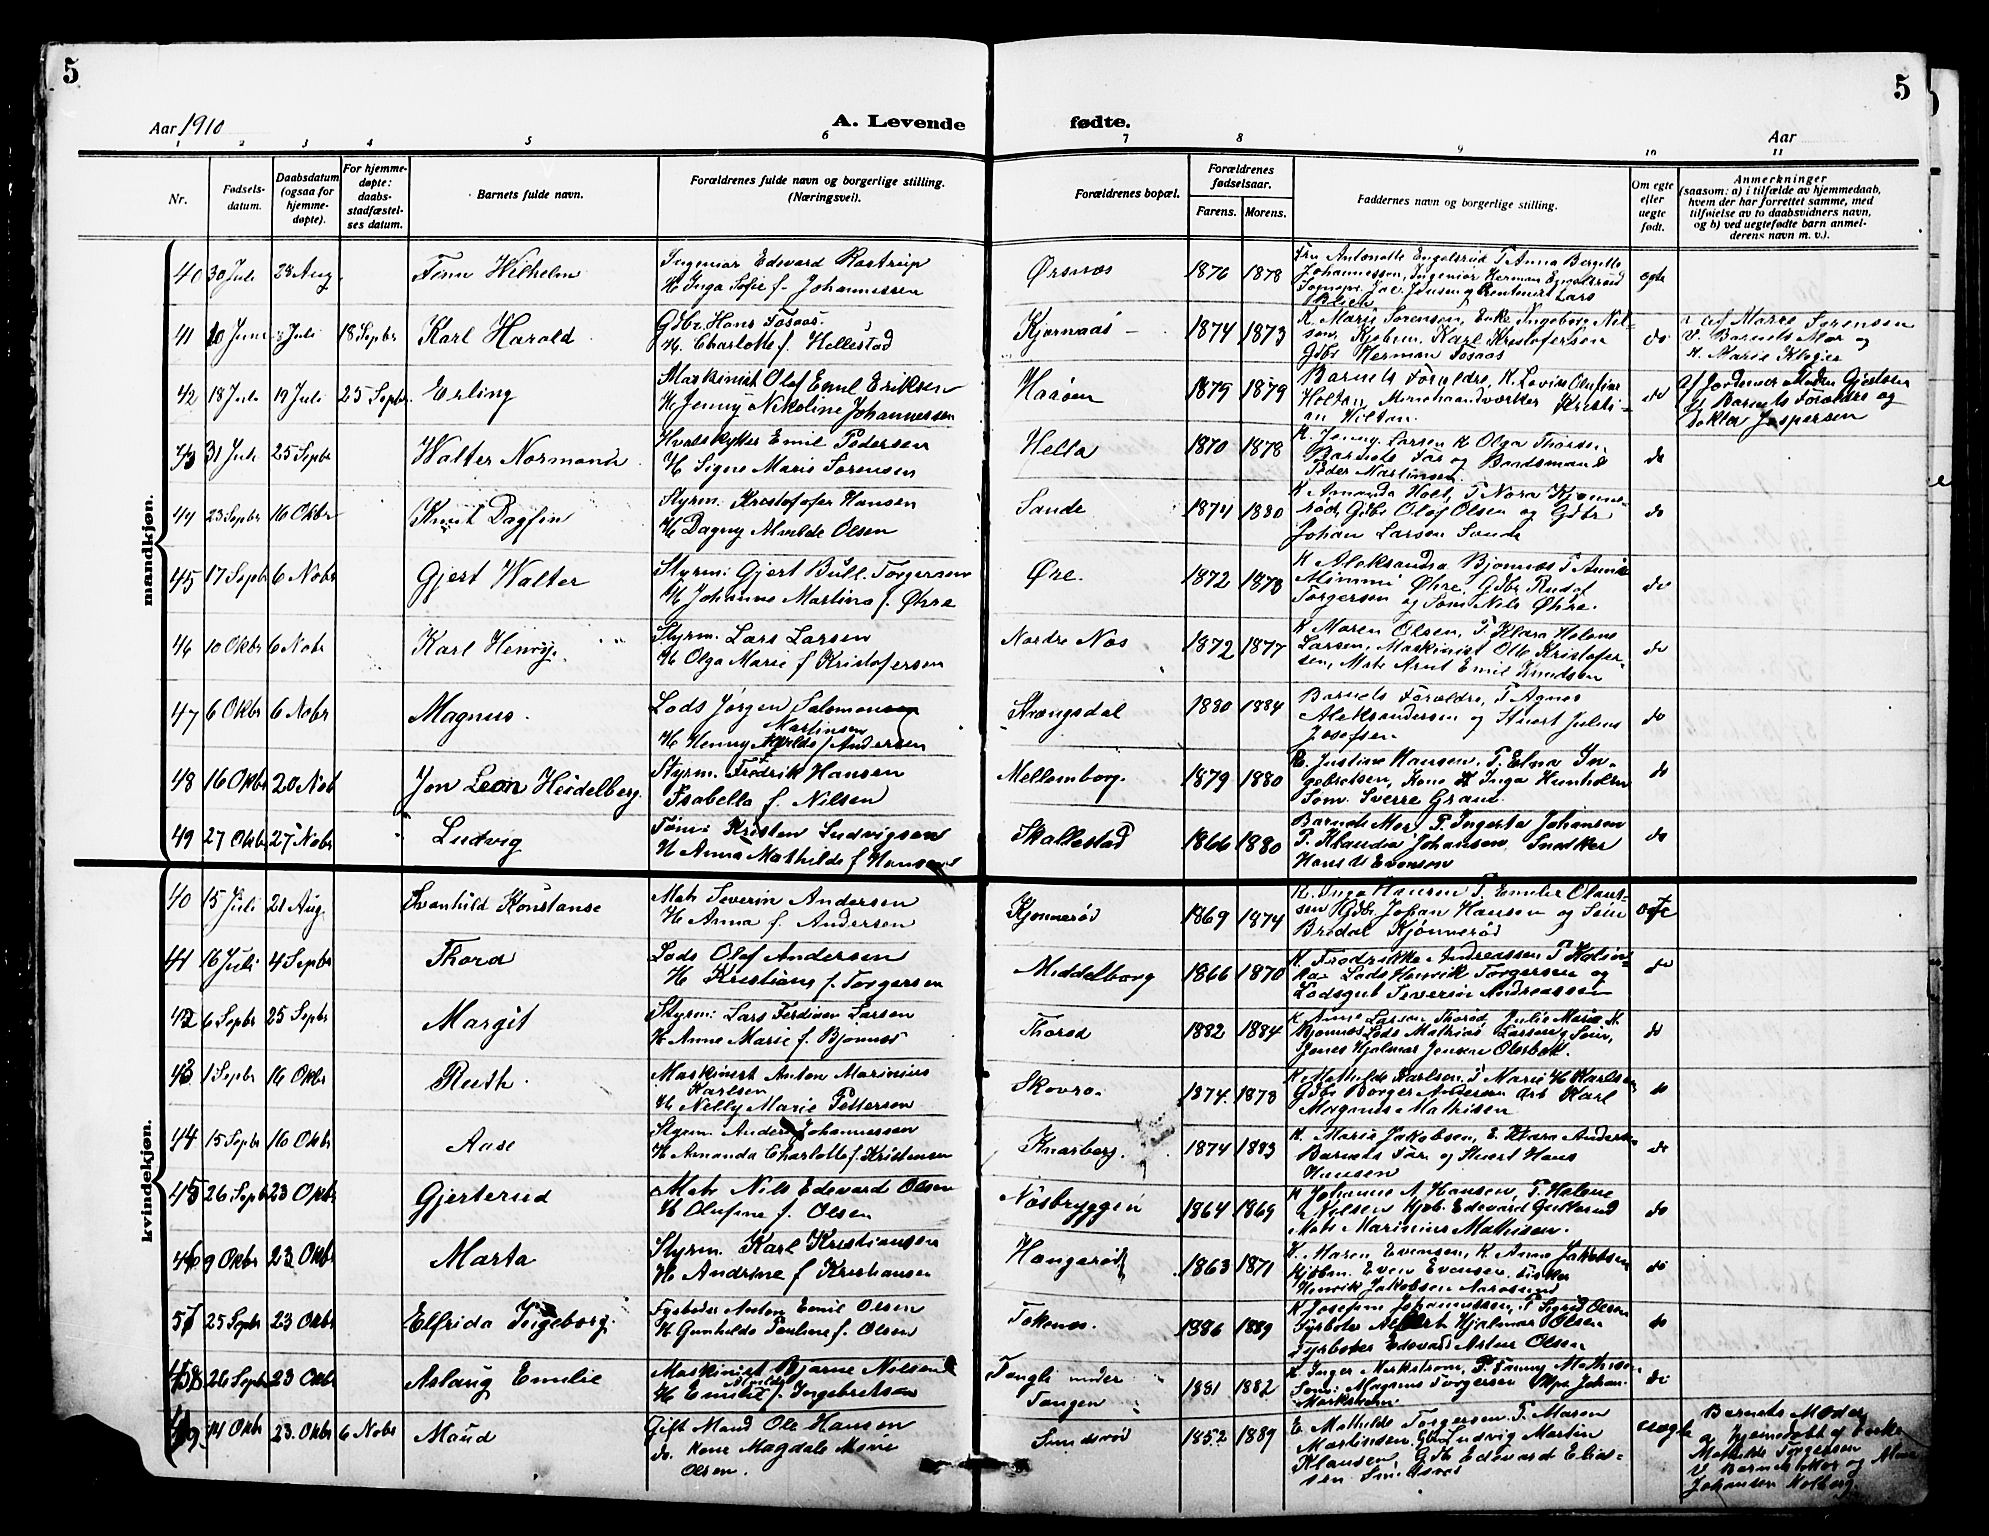 5
5
Aar 1910
A. Levende
fødte.
Aar
1 2 3 4 5 6 7 8 9 10 11
Nr.
Fødsels-
datum.
Daabsdatum
(ogsaa for
hjemme-
døpte).
For hjemme-
døpte:
daabs-
stadfæstel-
ses datum.
Barnets fulde navn.
Forældrenes fulde navn og borgerlige stilling.
(Næringsvei).
Forældrenes bopæl.
Forældrenes
fødselsaar.
Farens. Morens.
Faddernes navn og borgerlige stilling.
Om egte
eller
uegte
født.
Anmerkninger
(saasom: a) i tilfælde av hjemmedaab,
hvem der har forrettet samme, med
tilføielse av to daabsvidners navn,
og b) ved uegtefødte barn anmel-
derens navn m. v.).
mandkjøn.
40 30 Juli 28 Aug. Finn Wilhelm
Ingeniør Edevard Rastrup
H. Inga Sofie f. Johannessen
Ørsnes 1876 1878
Fru Antonette Engelsrud T. Anna Bergitte
Johannessen, Ingeniør Herman Engelsrud
Lars
Olsen
egte
41 10 Juni Juli 18 Septbr Karl Harald
Gdbr. Hans Fosaas
H. Charlotte f. Hellestad
Kjernaas 1874 1873
K. Marie Sørensen, Enke Ingeborg Nil-
sen, Kjøbm. Karl Kristofersen
Gdbr Herman Fosaas
do
af Marie Sørensen
V. Barnets Mor og
H. Marie
42 18 Juli 19 Juli 25 Septbr Erling
Maskinist Olaf Emil Eriksen
H. Jenny Nikoline Johannessen
Haaøen 1879 1879
Barnets Forældre, K. Lovise Olufine
Holtan, Kristi-
an Hiltan.
do
af Jordemor Gjertsen
V. Barnets Forældre og
Doktor Jespersen
43 31 Juli 25 Septbr Walter Normann
Hvalskytter Emil Pedersen
H. Signe Marie Sørensen
Hella 1870 1878
K. Jenny Larsen K. Olga Thorsen
Barnets Far og Baadsmand
Peder Martinsen
do
44 23 Septbr 16 Oktbr Knut Dagfin
Styrm. Kristofer Hansen
H. Dagny Alvilde Olsen
Sande 1874 1880
K. Amanda Holt, P. Nora Kjønne-
rød, Gdbr Olof Olsen og Gdbr
Johan Larsen Sande
do
45 17 Septbr 6 Nobr Gjert Walter
Styrm: Gjert Bull Torgersen
H. Johanne Martina f. Øhre
Øre. 1872 1878
K. Aleksandra Bjønnes P. Anna
Mimmi Øhre, Gdbr. Rudolf
Torgersen og Søm Nils Øhre.
do
46 10 Oktbr 6 Nobr Karl Henry.
Styrm. Lars Larsen
H. Olga Marie f. Kristofersen
Nordre Nes 1872 1877
K. Maren Olsen, P. Klara Helene
Larsen, Maskinist Olb Kristofer-
sen, Mate Arnt Emil Knudsen
do
47 6 Oktbr 6 Nobr Magnus.
Lods Jørgen Salomonsen
Martinsen
H. Henny Alvilde f. Andersen
Strengsdal 1880 1884
Barnets Forældre, P. Agnes
Aleksandersen og Stuert Julius
Josefsen
do
48 16 Oktbr 20 Nob Jon Leon Heidelberg.
Styrm. Fredrik Hansen
Isabella f. Nilsen
Mellemborg. 1879 1880
E. Justine Hansen, P. Elna In-
gebretsen, Kone Inga
Søm. Sverre Gran
do
49 27 Oktbr 27 Nobr Ludvig
Tømr Kristen Ludvigsen
H. Anna Mathilde f. Hansen
Skallestad 1866 1880
Barnets Mor, P. Ingerta Johansen
P. Klaudia Johansen, Snedker
Hans M. Evensen
do
kvindekjøn.
40 15 Juli 21 Aug. Svanhild Konstanse
Mate Severin Andersen
H. Anna f. Andersen
Kjønnerød 1869 1874
K. Inga Hansen P. Emilie Olaus-
sen Gdbr. Johan Hansen og Søm
Bredal Kjønnerød
egte
41 16 Juli 4 Septbr Thora
Lods Olaf Andersen
H. Kristiane f. Torgersen
Middelborg 1866 1870
K. Fredrikke Andreassen P. Kalin-
ka Lods Henrik Torgersen og
Lodsgut Severin Andreassen
do
42 6 Septbr 25 Septbr Margit
Styrm: Lars Ferdinan Larsen
H. Anne Marie f. Bjønnes
Thorød 1882 1884
K. Anne Larsen Thorød, Julie Marie K.
Bjønnes, Lods Mathias Larsen og Søm,
Hjalmar Jensen Olesbek.
do
43 1 Septbr 16 Oktbr Ruth.
Maskinist Anton Marinius
Karlsen
H. Nelly Marie Pettersen
Skovro. 1874. 1878
K. Mathilde Karlsen, P. Marie H. Karlsen
Gdbr Borger Andersen Arb Karl
Magnus Mathisen
do
44 15 Septbr 16 Oktbr Aase
Styrm. Anders Johannessen
H. Amanda Charlotte f. Kristensen
Knarberg. 1874 1883
K. Marie Jakobsen, E. Klara Anders
Barnets Far og Stuert Hans
Hansen
do
45 26 Septbr 23 Oktbr Gjerterud
Mate Nils Edevard Olsen
H. Olufine f. Olsen
Nesbryggen 1864 1869
K. Johanne A. Hansen, P. Helene
Nilsen Kjøb. Edevard
Mate Marinius Mathisen.
do
46 9 Oktbr 23 Oktbr Marta
Styrm. Karl Kristiansen
H. Andrine f. Kristiansen
Haugerød 1863 1871
K. Maren Evensen, K. Anne Jakobsen
Kjøbm. Even Evensen, Fisker
Henrik Jakobsen Aarøsund
do
57 25 Septbr 23 Oktbr Elfrida Ingeborg.
Fyrbøter Anton Emil Olsen
H. Gunhilda Pauline f. Olsen
Tokenes. 1886 1889
K. Josefine Johannessen, P. Sigrid Olsen
Fyrbøter Albert Hjalmar Olsen
Fyrbøter Edevard Artur Olsen
do
48 26 Septbr 23 Oktbr Aslaug Emilie
Maskinist Bjarne Nilsen
Alvilde
H. Emilie f. Ingebretsen
Tangli under
Tangen 1881 1882
K. Inger Merkstrøm, P. Fanny Mathisen
Søm: Magnus Torgersen Johan
do
49. 14 Oktbr 23. Oktbr 6 Nobr Maud
Gift Mand Ole Hansen
do. Kone Magdale Marie
Olsen.
Smidsrød 1852 1889
E. Mathilde Torgersen P. Maren
Martinsen, Gbr Ludvig Martin
Klausen, Gdb Edevard Elias-
sen Smidsrød
uegte
Barnets Moder
a hjemedøbt af Enke
Mathilde Torgersen
V. Barnets Mor og
Johansen Kolberg.